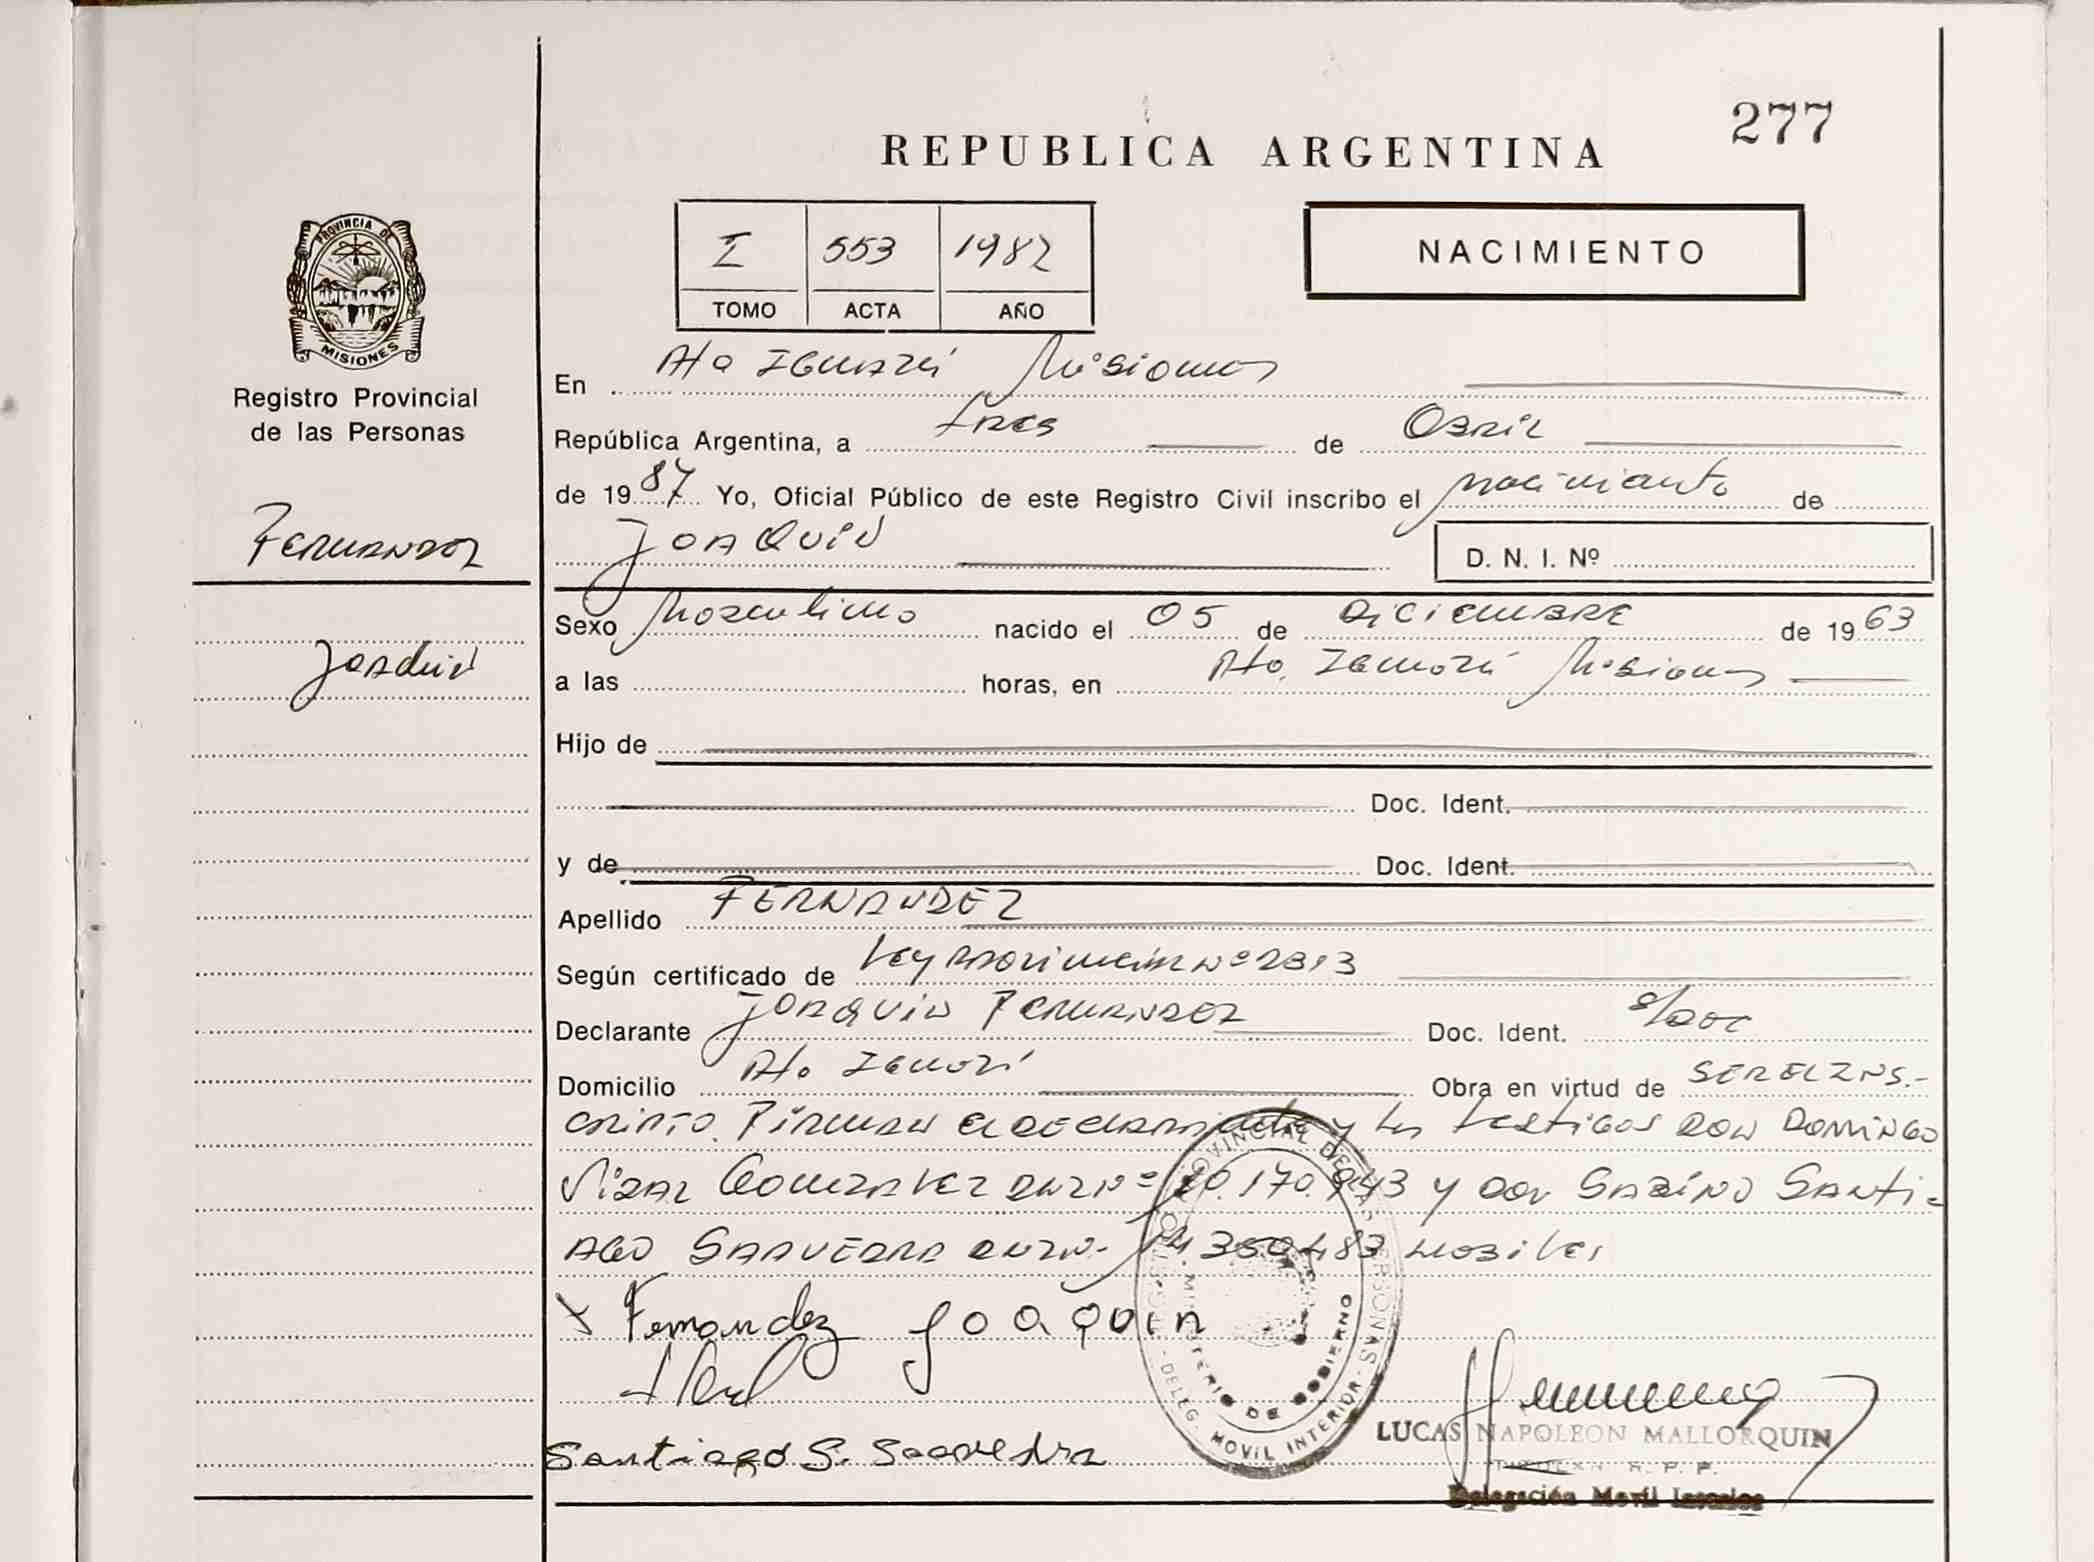 277
REPUBLICA ARGENTINA
I 553 1982
TOMO ACTA AÑO
NACIMIENTO
PROVINCIA DE
MISIONES
Registro Provincial
de las Personas
Fernandez
Joaquin
En Pto Iguazú Misiones
República Argentina, a tres de Abril
de 1987 Yo, Oficial Público de este Registro Civil inscribo el nacimiento de
Joaquin D. N. I. Nº
Sexo Masculino nacido el 05 de Diciembre de 1963
a las horas, en Pto. Iguazú Misiones
Hijo de
Doc. Ident.
y de Doc. Ident.
Apellido FERNANDEZ
Según certificado de Ley Nº
Declarante Joaquin Fernandez Doc. Ident. s/doc
Domicilio Pto Iguazú Obra en virtud de SERELINS.-
CRIPTO. Firman el declarante y los testigos DON DOMINGO
Vidal Gonzalez DNI Nº 20.170.943 y don SABINO SANTI-
AGO SAAVEDRA DNI N- 14350483 hábiles
x Fernandez Joaquin
Santiago S. Saavedra
REGISTRO PROVINCIAL DE LAS PERSONAS
MINISTERIO DE GOBIERNO
DELEG. MOVIL INTERIOR
LUCAS NAPOLEON MALLORQUIN
R. P. P.
Delegación Movil Interior